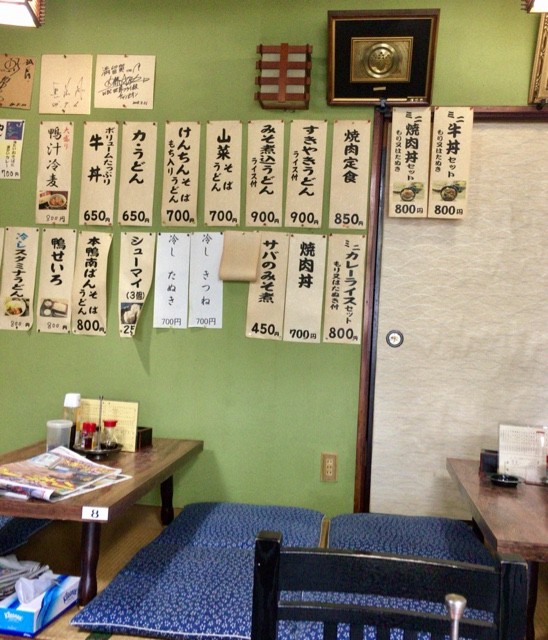 ミニ焼肉丼セット
もり又はたぬき
800円
ミニ牛丼セット
もり又はたぬき
800円
焼肉定食
850円
すきやきうどん
ライス付
900円
みそ煮込うどん
ライス付
900円
山菜そば
うどん
700円
けんちんそば
もち入りうどん
700円
力うどん
650円
ボリュームたっぷり
牛丼
650円
大盛り
鴨汁冷麦
800円
700円
ミニカレーライスセット
もり又はたぬき付
800円
焼肉丼
700円
サバのみそ煮
450円
冷しきつね
700円
冷したぬき
700円
シューマイ
(3個)
本鴨南ばんそば
うどん
800円
鴨せいろ
800円
冷しスタミナうどん
800円
8